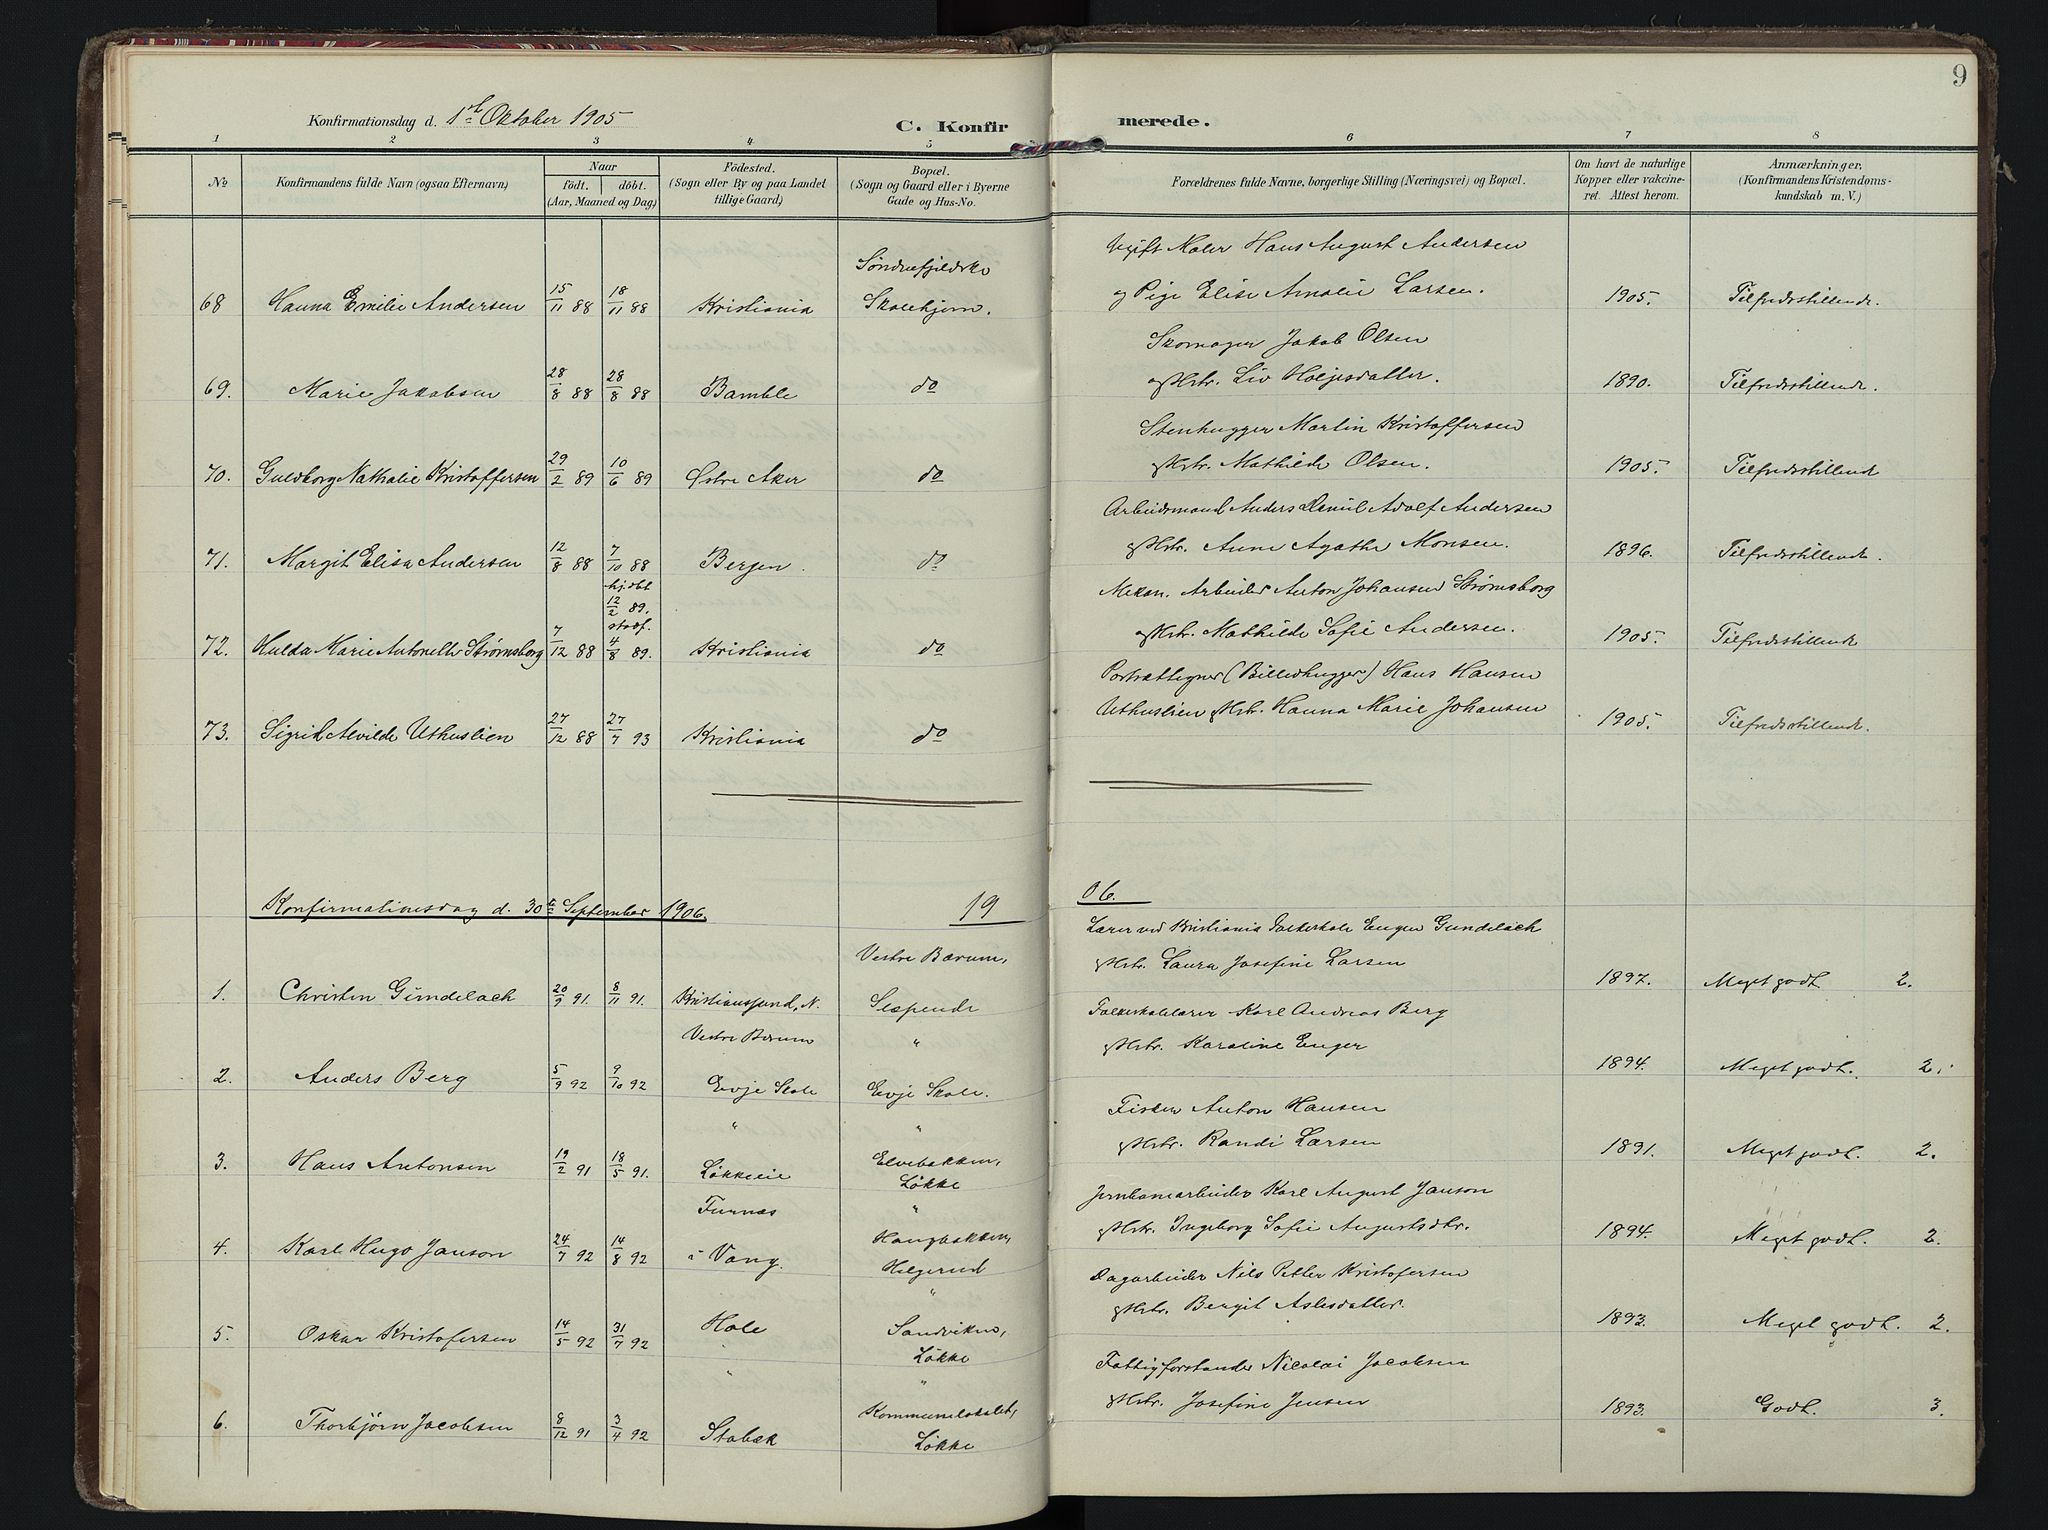 9
Konfirmationsdag d. 1ste Oktober 1905
C. Konfir merede.
1 2 3 4 5 6 7 8
No
Konfirmandens fulde Navn (ogsaa Efternavn)
Naar
födt. döbt.
(Aar, Maaned og Dag)
Födested.
(Sogn eller By og paa Landet
tillige Gaard)
Bopæl.
(Sogn og Gaard eller i Byerne
Gade og Hus-No.
Forældrenes fulde Navne, borgerlige Stilling (Næringsvei) og Bopæl.
Om havt de naturlige
Kopper eller vakcine-
ret. Attest herom.
Anmærkninger,
(Konfirmandens Kristendoms-
kundskab m. V.)
Søndrefjeldske Ugift Maler Hans August Andersen
68 Hanna Emilie Andersen 15/11 88 18/11 88 Kristiania Skolehjem. og Pige Elise Amalie Larsen. 1905. Tilfredsstillende.
Skomager Jakob Olsen
69. Marie Jakobsen 28/8 88 28/8 88 Bamble do og Hstr. Liv Holjesdatter. 1890. Tilfredsstillende.
Stenhugger Martin Kristoffersen
70. Guldborg Nathalie Kristoffersen 29/2 89 10/6 89 Østre Aker do og Hstr. Mathilde Olsen. 1905. Tilfredsstillende
Arbeidsmand Anders Daniel Adolf Andersen
71. Margit Elisa Andersen 12/8 88 7/10 88 Bergen. do og Hstr. Anne Agathe Monsen. 1896. Tilfredsstillende.
hj.dbt 12/2 89. Mekan. Arbeider Anton Johansen Strømsborg
stadf.
72. Hulda Marie Antonette Strømsborg 7/12 88 4/8 89. Kristiania do og Hstr. Mathilde Sofie Andersen. 1905. Tilfredsstillende
Portrættegner (Billedhugger) Hans Hansen
73. Sigrid Alvilde Uthuslien 27/12 88 27/7 93 Kristiania do Uthuslien og Hstr. Hanna Marie Johansen 1905. Tilfredsstillende.
Konfirmationsdag d. 30te September 1906. 19 06.
Vestre Bærum, Lærer ved Kristiania Eugen Gundelach
1. Christen Gundelach 20/9 91. 8/11 91. Kristianssund, N. Slæpende og Hstr. Laura Josefine Larsen 1897. Meget godt 2.
Vestre Bærum " Folkeskolelærer Karl Andreas Berg
2. Anders Berg 5/9 92 9/10 92 Evje Skole Evje Skole. og Hstr. Karoline Enger 1894. Meget godt. 2.
" " Fisker Anton Hansen
3. Hans Antonsen 19/2 91 18/5 91. Løkkeeie Elvebakken, Løkke og Hstr. Randi Larsen 1891. Meget godt. 2.
Furnæs " Jernbanearbeider Karl August Janson
4. Karl Hugo Janson 24/7 92 14/8 92 i Vang. Haugbakken, Helgerud og Hstr. Ingeborg Sofie Augustsdtr. 1894. Meget godt. 2.
" Dagarbeider Nils Petter Kristofersen
5. Oskar Kristofersen 14/5 92 31/7 92 Hole Sandviken, Løkke og Hstr. Bergit Aslesdatter. 1893. Meget godt. 2.
" " Fattigforstander Nicolai Jacobsen
6. Thorbjörn Jacobsen 8/12 91 3/4 92 Stabæk Kommunelokalet, Løkke og Hstr. Josefine Jensen 1893. Godt. 3.